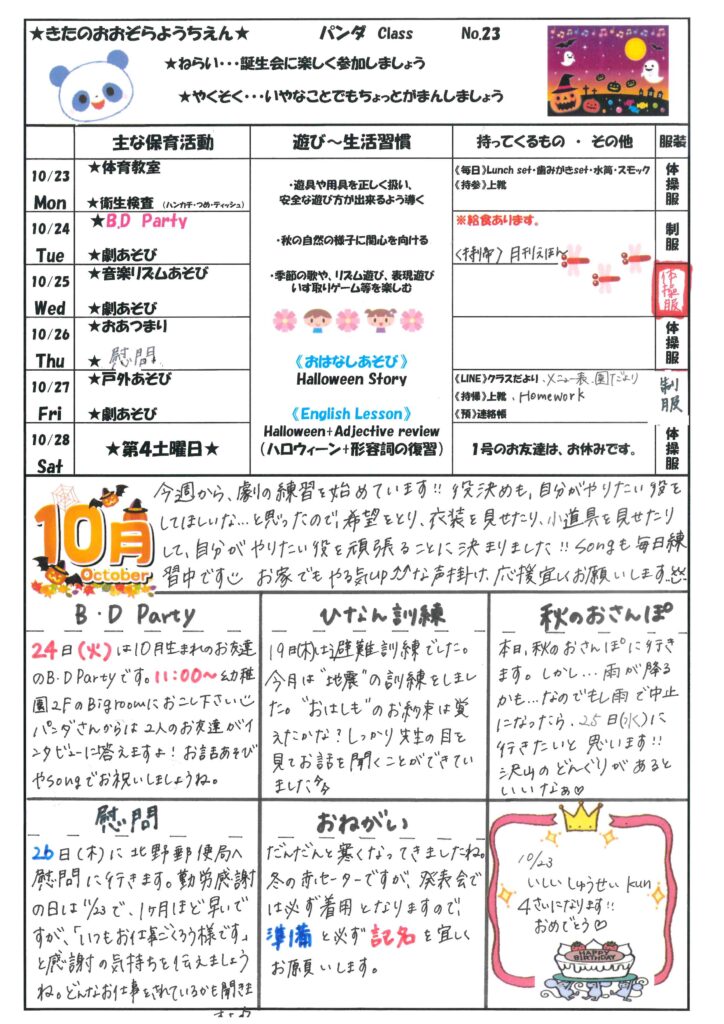 ★きたのおおぞらようちえん★ パンダ Class No.23
★ねらい・・・誕生会に楽しく参加しましょう
★やくそく・・・いやなことでもちょっとがまんしましょう
主な保育活動 遊び～生活習慣 持ってくるもの ・ その他 服装
10/23 Mon
★体育教室
★衛生検査 (ハンカチ・つめ・ティッシュ)
《毎日》Lunch set・歯みがきset・水筒・スモック
《持参》上靴
体操服
10/24 Tue
★B.D Party
★劇あそび
※給食あります。
《持帰》月刊えほん
制服
10/25 Wed
★音楽リズムあそび
★劇あそび
体操服
10/26 Thu
★おあつまり
★慰問
体操服
10/27 Fri
★戸外あそび
★劇あそび
《LINE》クラスだより、メニュー表、園だより
《持帰》上靴、Homework
《預》連絡帳
制服
10/28 Sat
★第4土曜日★
1号のお友達は、お休みです。
体操服
・遊具や用具を正しく扱い、
安全な遊び方が出来るよう導く
・秋の自然の様子に関心を向ける
・季節の歌や、リズム遊び、表現遊び
いす取りゲーム等を楽しむ
《おはなしあそび》
Halloween Story
《English Lesson》
Halloween+Adjective review
（ハロウィーン+形容詞の復習）
10月
October
今週から、劇の練習を始めています!! 役決めも、自分がやりたい役を
してほしいな…と思ったので、希望をとり、衣装を見せたり、小道具を見せたり
して、自分がやりたい役を頑張ることに決まりました!! Songも毎日練
習中です お家でもやる気upな声掛け、応援宜しくお願いします
B・D Party
24日(火)は10月生まれのお友達
のB・D Partyです。11:00～幼稚
園2FのBig roomにおこし下さい
パンダさんからは2人のお友達がイ
ンタビューに答えますよ! お話あそび
やsongでお祝いしましょうね。
ひなん訓練
19日(木)は避難訓練でした。
今月は"地震"の訓練をしまし
た。"おはしも"のお約束は覚
えたかな? しっかり先生の目を
見てお話を聞くことができてい
ました
秋のおさんぽ
本日、秋のおさんぽに行き
ます。しかし… 雨が降る
かも…なのでもし雨で中止
になったら、25日(水)に
行きたいと思います!!
沢山のどんぐりがあると
いいなぁ♡
慰問
26日(木)に北野郵便局へ
慰問に行きます。勤労感謝
の日は11/23で、1ヶ月ほど早いで
すが、「いつもお仕事ごくろう様です」
と感謝の気持ちを伝えましょう
ね。どんなお仕事をされているかも聞きま
しょう
おねがい
だんだんと寒くなってきましたね。
冬の赤セーターですが、発表会で
は必ず着用となりますので、
準備と必ず記名を宜しく
お願いします。
10/23
いしい しゅうせい kun
4さいになります!!
おめでとう♡
HAPPY
BIRTHDAY